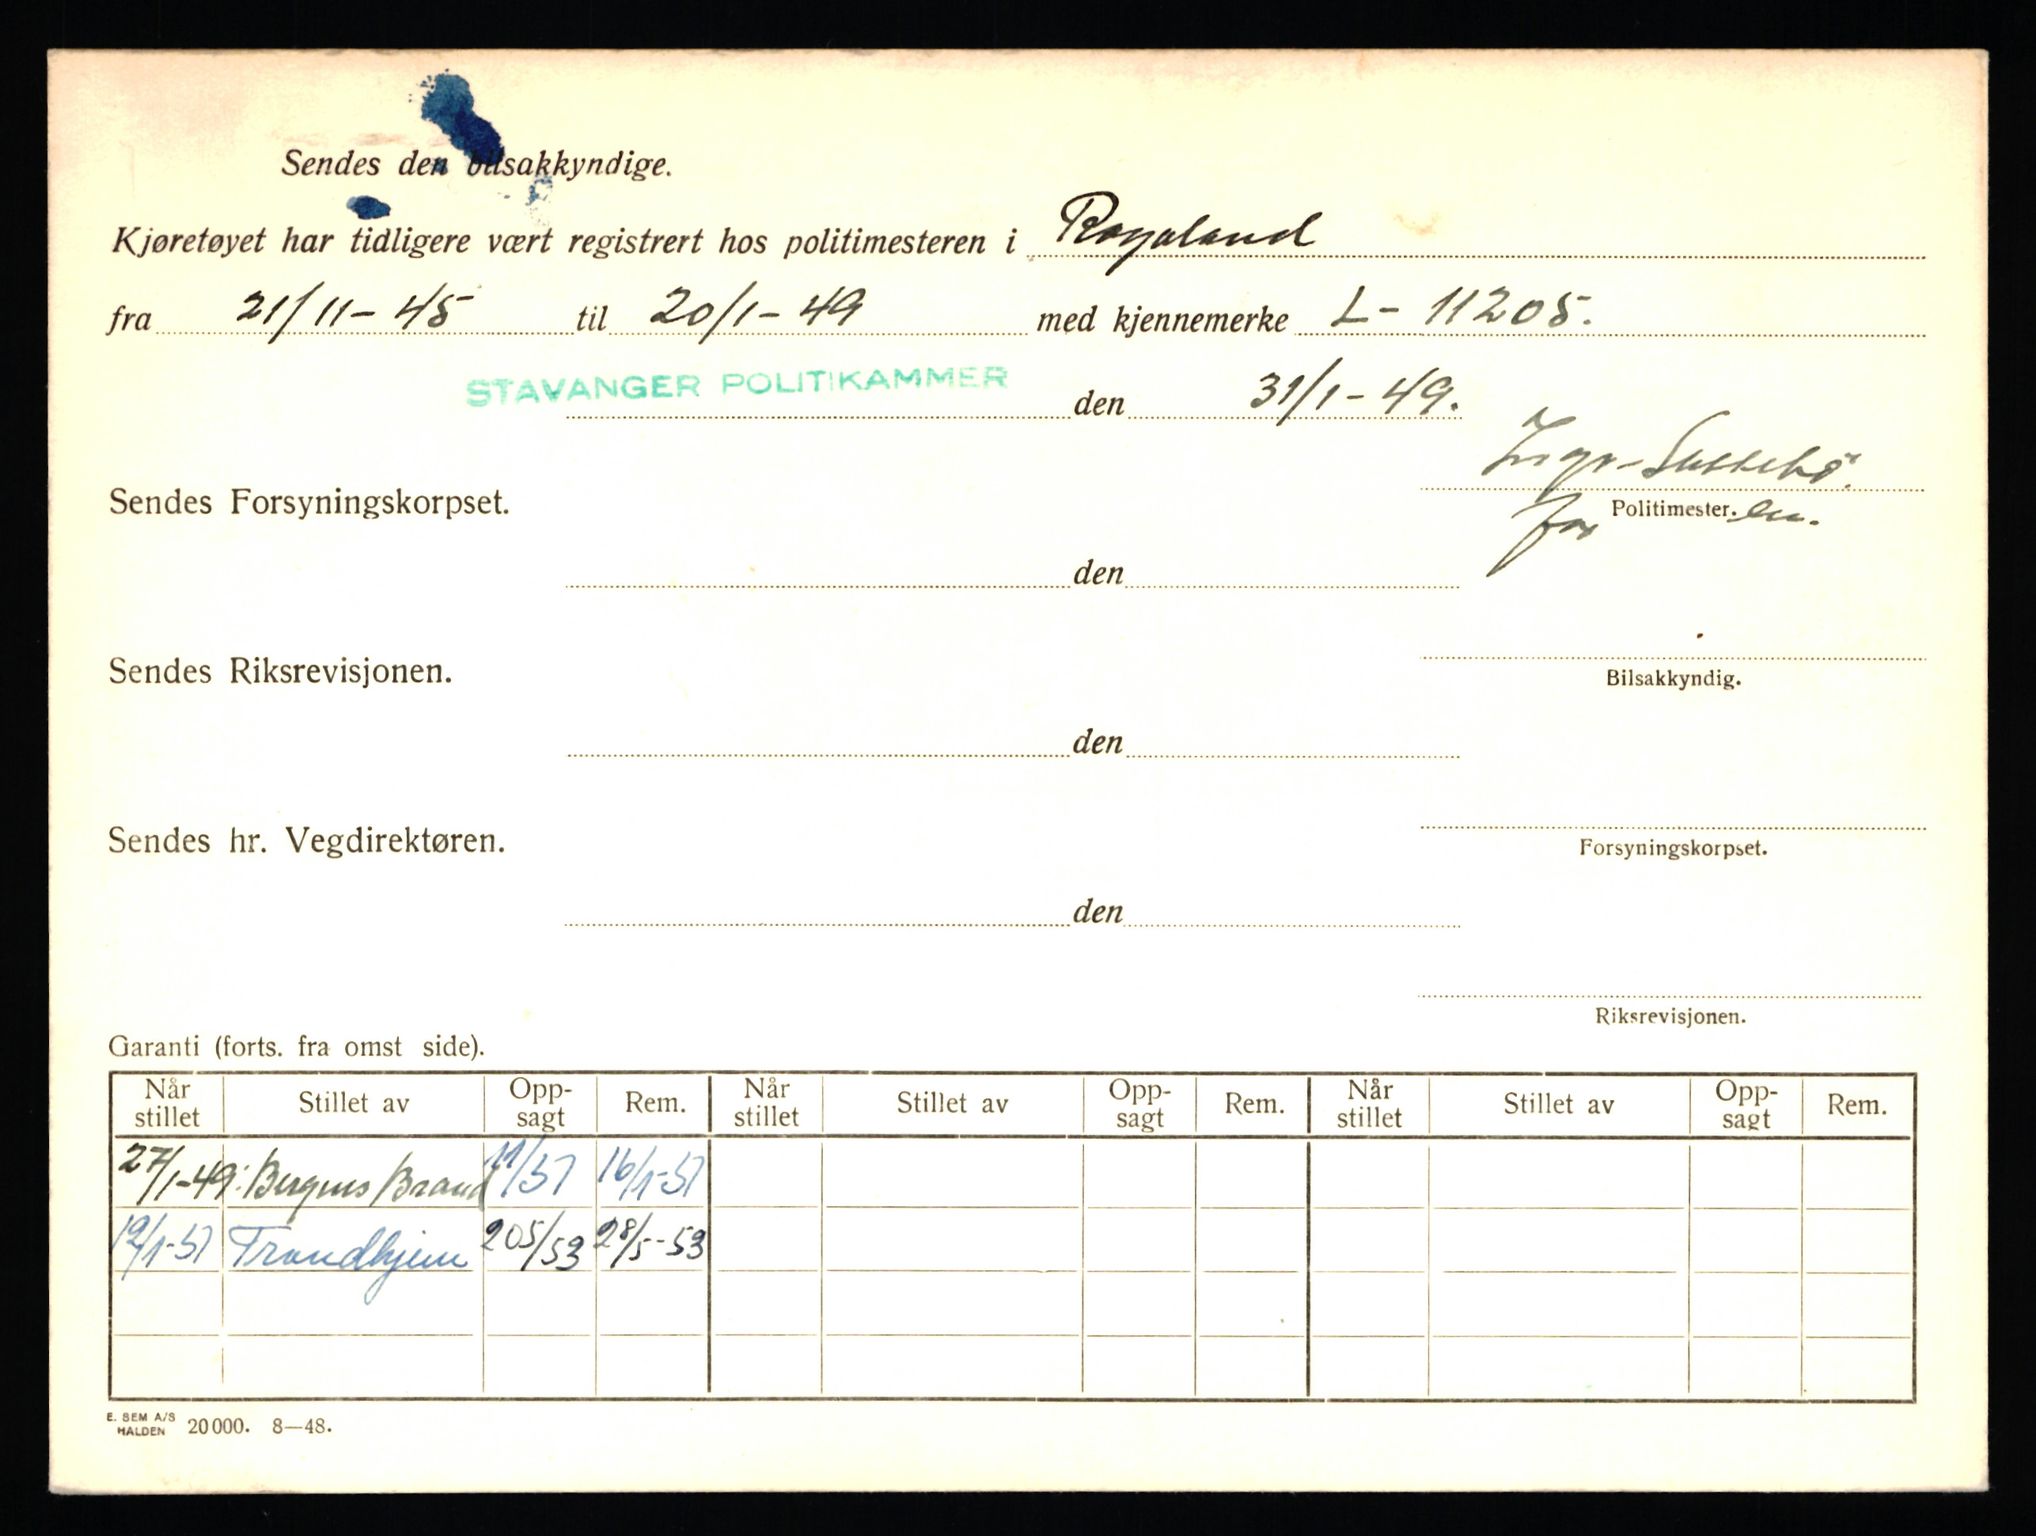 Sendes den bilsakkyndige.
Kjøretøyet har tidligere vært registrert hos politimesteren i Rogaland
fra 21/11-45 til 20/1-49 med kjennemerke L-11205.
STAVANGER POLITIKAMMER den 31/1-49.
Sendes Forsyningskorpset.
for Politimester. en.
den
Sendes Riksrevisjonen.
Bilsakkyndig.
den
Sendes hr. Vegdirektøren.
Forsyningskorpset.
den
Riksrevisjonen.
Garanti (forts. fra omst side).
Når stillet Stillet av Opp-sagt Rem. Når stillet Stillet av Opp-sagt Rem. Når stillet Stillet av Opp-sagt Rem.
27/1-49 Bergens Brand 11/51 16/1-51
12/1-51 Trondhjem 205/53 28/5-53
E. SEM A/S HALDEN 20000. 8—48.